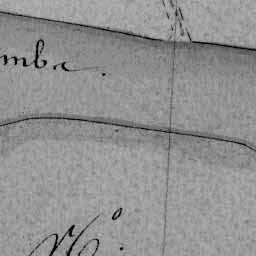 mba.
N°.